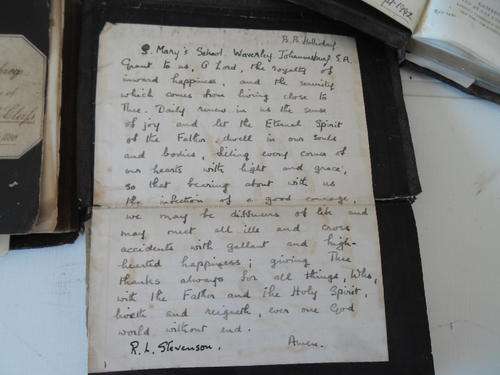 S. Mary's School, Waverley Johannesburg S.A.
Grant to us, O Lord, the royalty of
inward happiness, and the serenity
which comes from living close to
Thee. Daily renew in us the sense
of joy and let the Eternal Spirit
of the Father dwell in our souls
and bodies, filling every corner of
our hearts with light and grace,
so that bearing about with us
the infection of a good courage,
we may be diffusers of life and
may meet all ills and cross
accidents with gallant and high-
hearted happiness; giving Thee
thanks always for all things, Who,
with the Father and the Holy Spirit,
liveth and reigneth, ever one God
world without end.
R. L. Stevenson. Amen.